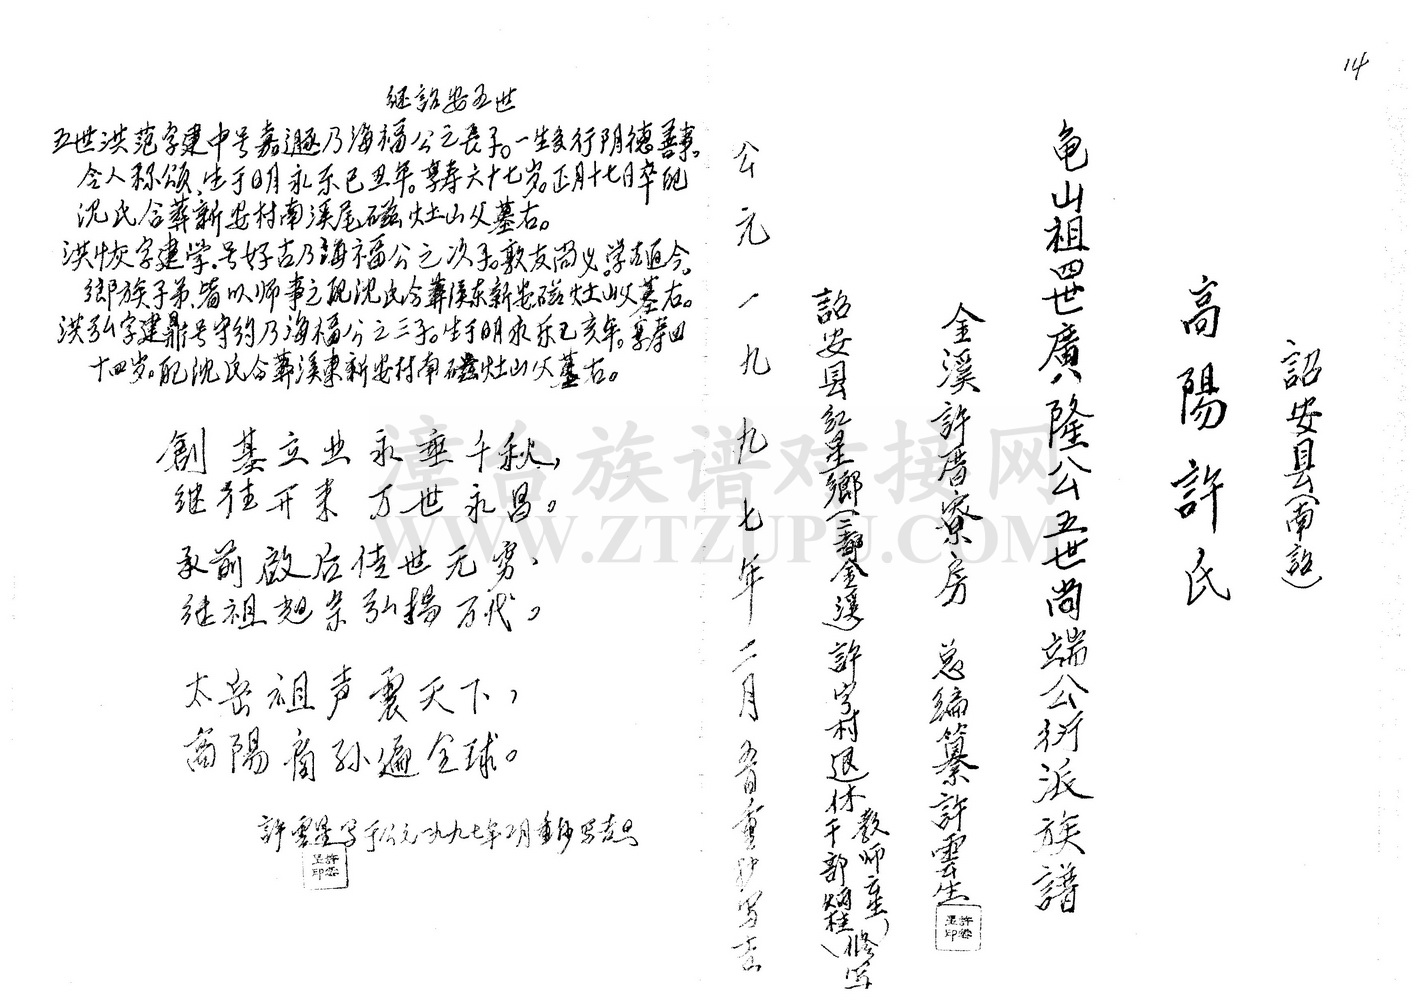 14
詔安县(南詔)
高陽許氏
龟山祖四世廣隆公五世尚端公衍派族譜
金溪許厝寮房 总编纂許雲生
詔安县红星鄉(二都金溪)許字村退休干部炳桂(修写
教师立生)
公元一九九七年二月 重抄写吉
继詔安五世
五世洪范字建中号嘉遯乃海福公之長子。一生多行阴德善事,
令人称颂,生于明永乐己丑年。享寿六十七岁。正月十七日卒配
沈氏合葬新安村南溪尾磁灶山父墓右。
洪恢字建学,号好古乃海福公之次子。敦友尚义。学古通今。
鄉族子弟,皆以师事之配沈氏合葬溪东新安磁灶山父墓右。
洪弘字建鼎号守约乃海福公之三子。生于明永乐己亥年。享寿四
十四岁。配沈氏合葬溪東新安村南磁灶山父墓右。
創基立业永垂千秋,
继往开来万世永昌。
承前啟后佳世无穷,
继祖 宗弘揚万代。
太岳祖声震天下,
高陽裔孙遍全球。
許雲星写于公元一九九七年2月重抄写吉旦
漳台族谱对接网
WWW.ZTZUPU.COM